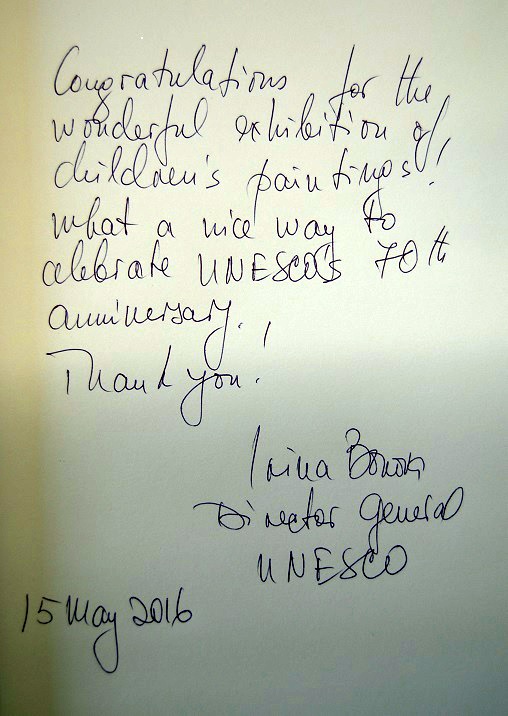 Congratulations for the
wonderful exhibition of
children's paintings!
what a nice way to
celebrate UNESCO's 70th
anniversary.
Thank you!
Irina Bokova
Director General
UNESCO
15 May 2016